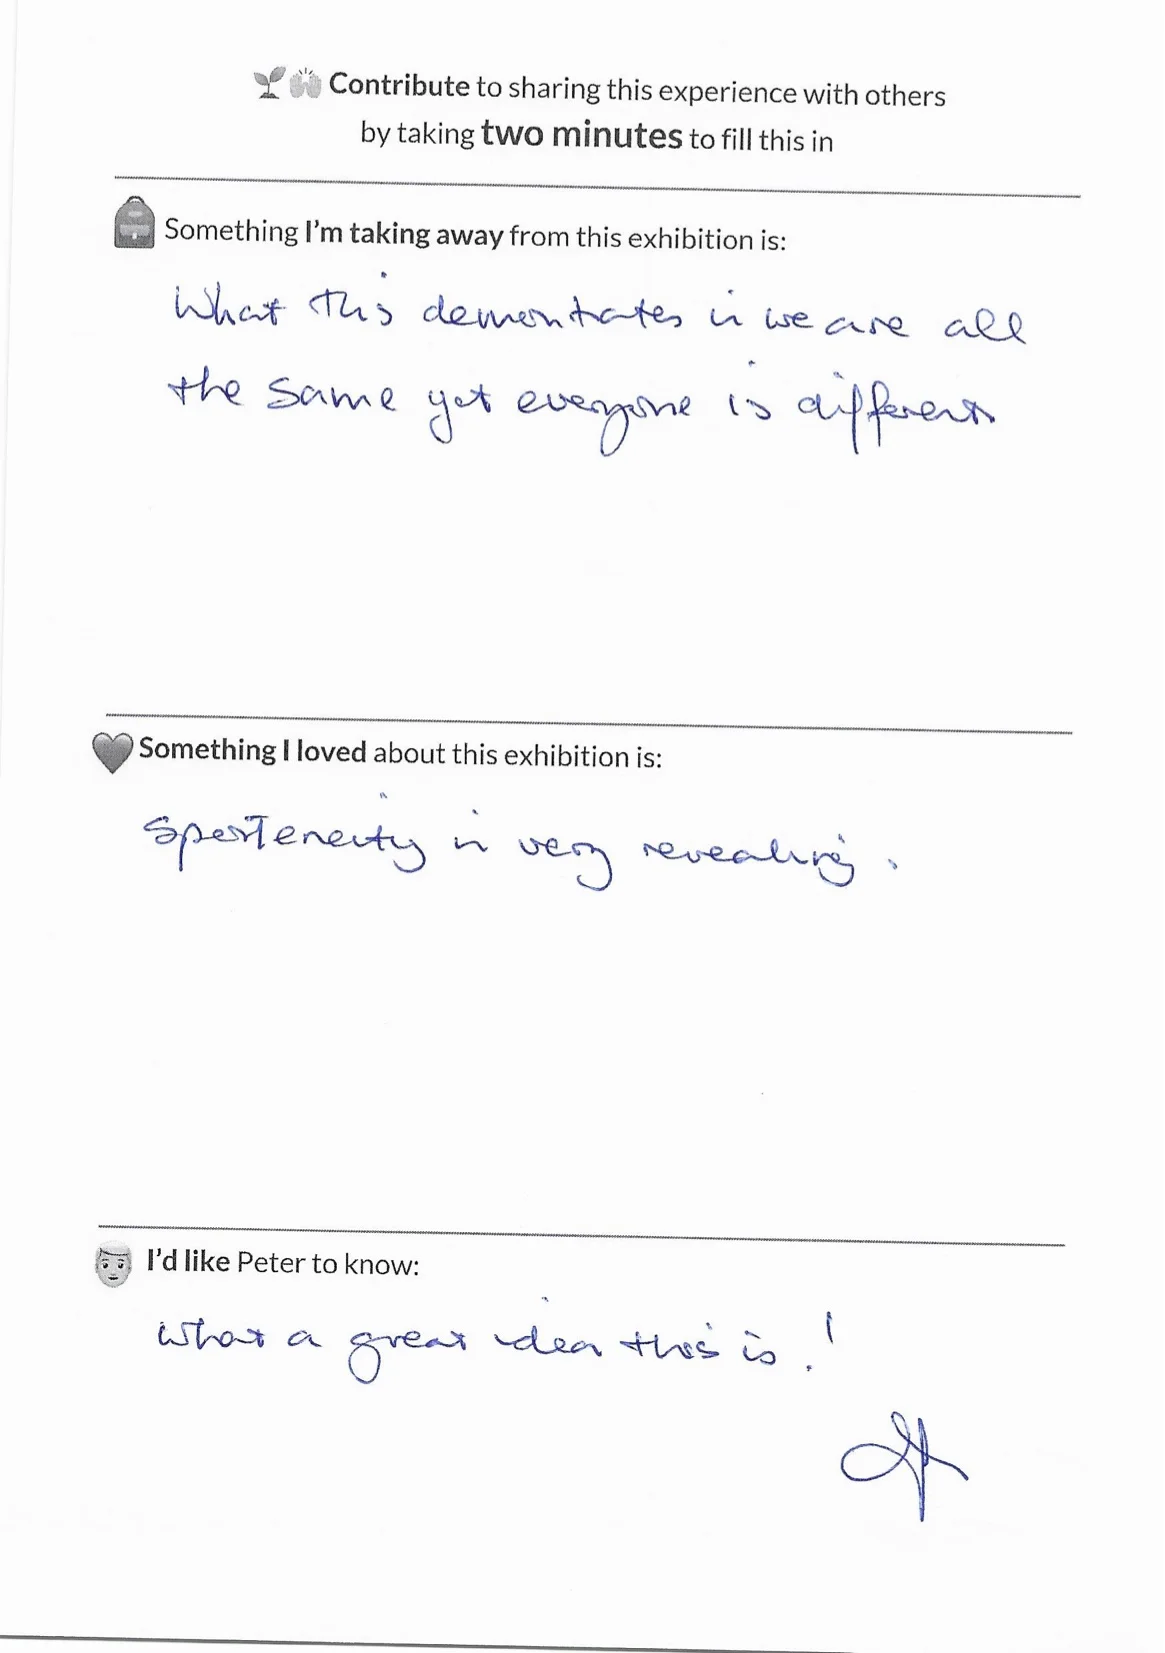 Contribute to sharing this experience with others
by taking two minutes to fill this in
Something I'm taking away from this exhibition is:
What this demontrates is we are all
the same yet everyone is different
Something I loved about this exhibition is:
Sponteneity is very revealing.
I'd like Peter to know:
What a great idea this is!